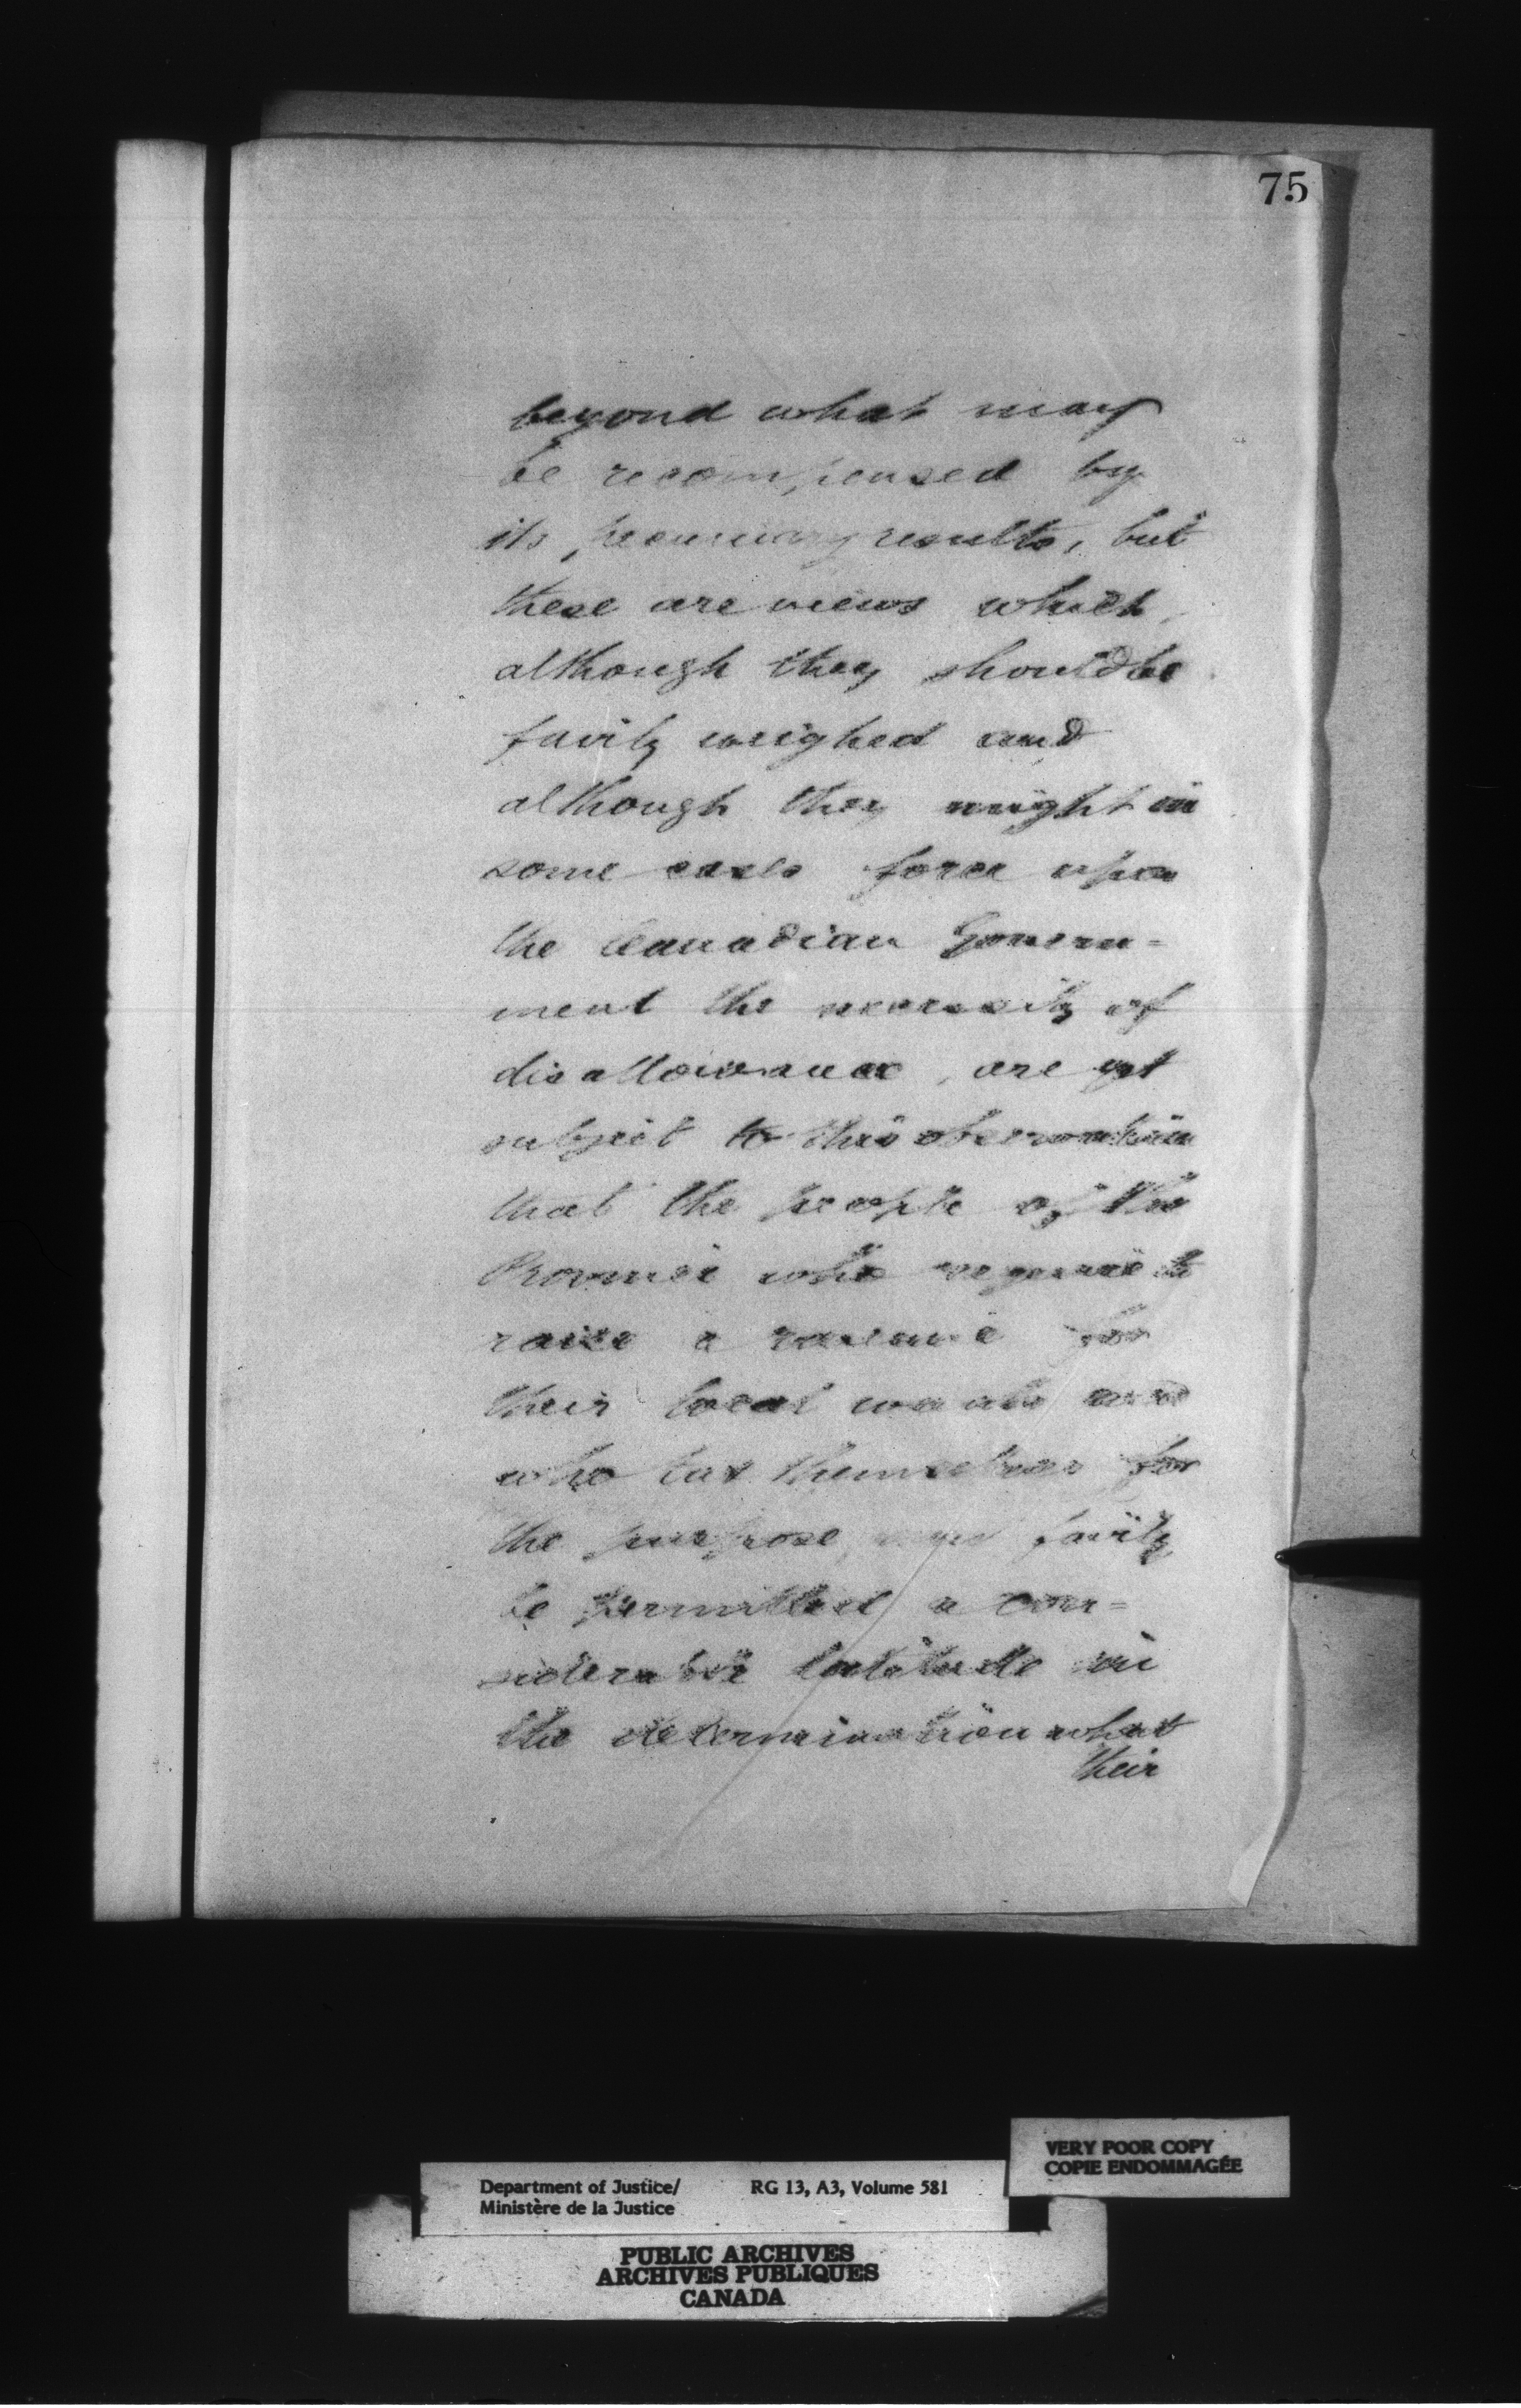 75
beyond what may
be recompensed by
its pecuniary results, but
these are views which,
although they should be
fairly weighed and
although they might in
some cases force upon
the Canadian Govern=
ment the necessity of
disallowance, are yet
subject to this observation
that the people of the
Province who require to
raise a revenue for
their local wants and
who tax themselves for
the purpose, fairly
be permitted a con=
siderable latitude in
the determination what
their
VERY POOR COPY
COPIE ENDOMMAGÉE
Department of Justice/ RG 13, A3, Volume 581
Ministère de la Justice
PUBLIC ARCHIVES
ARCHIVES PUBLIQUES
CANADA